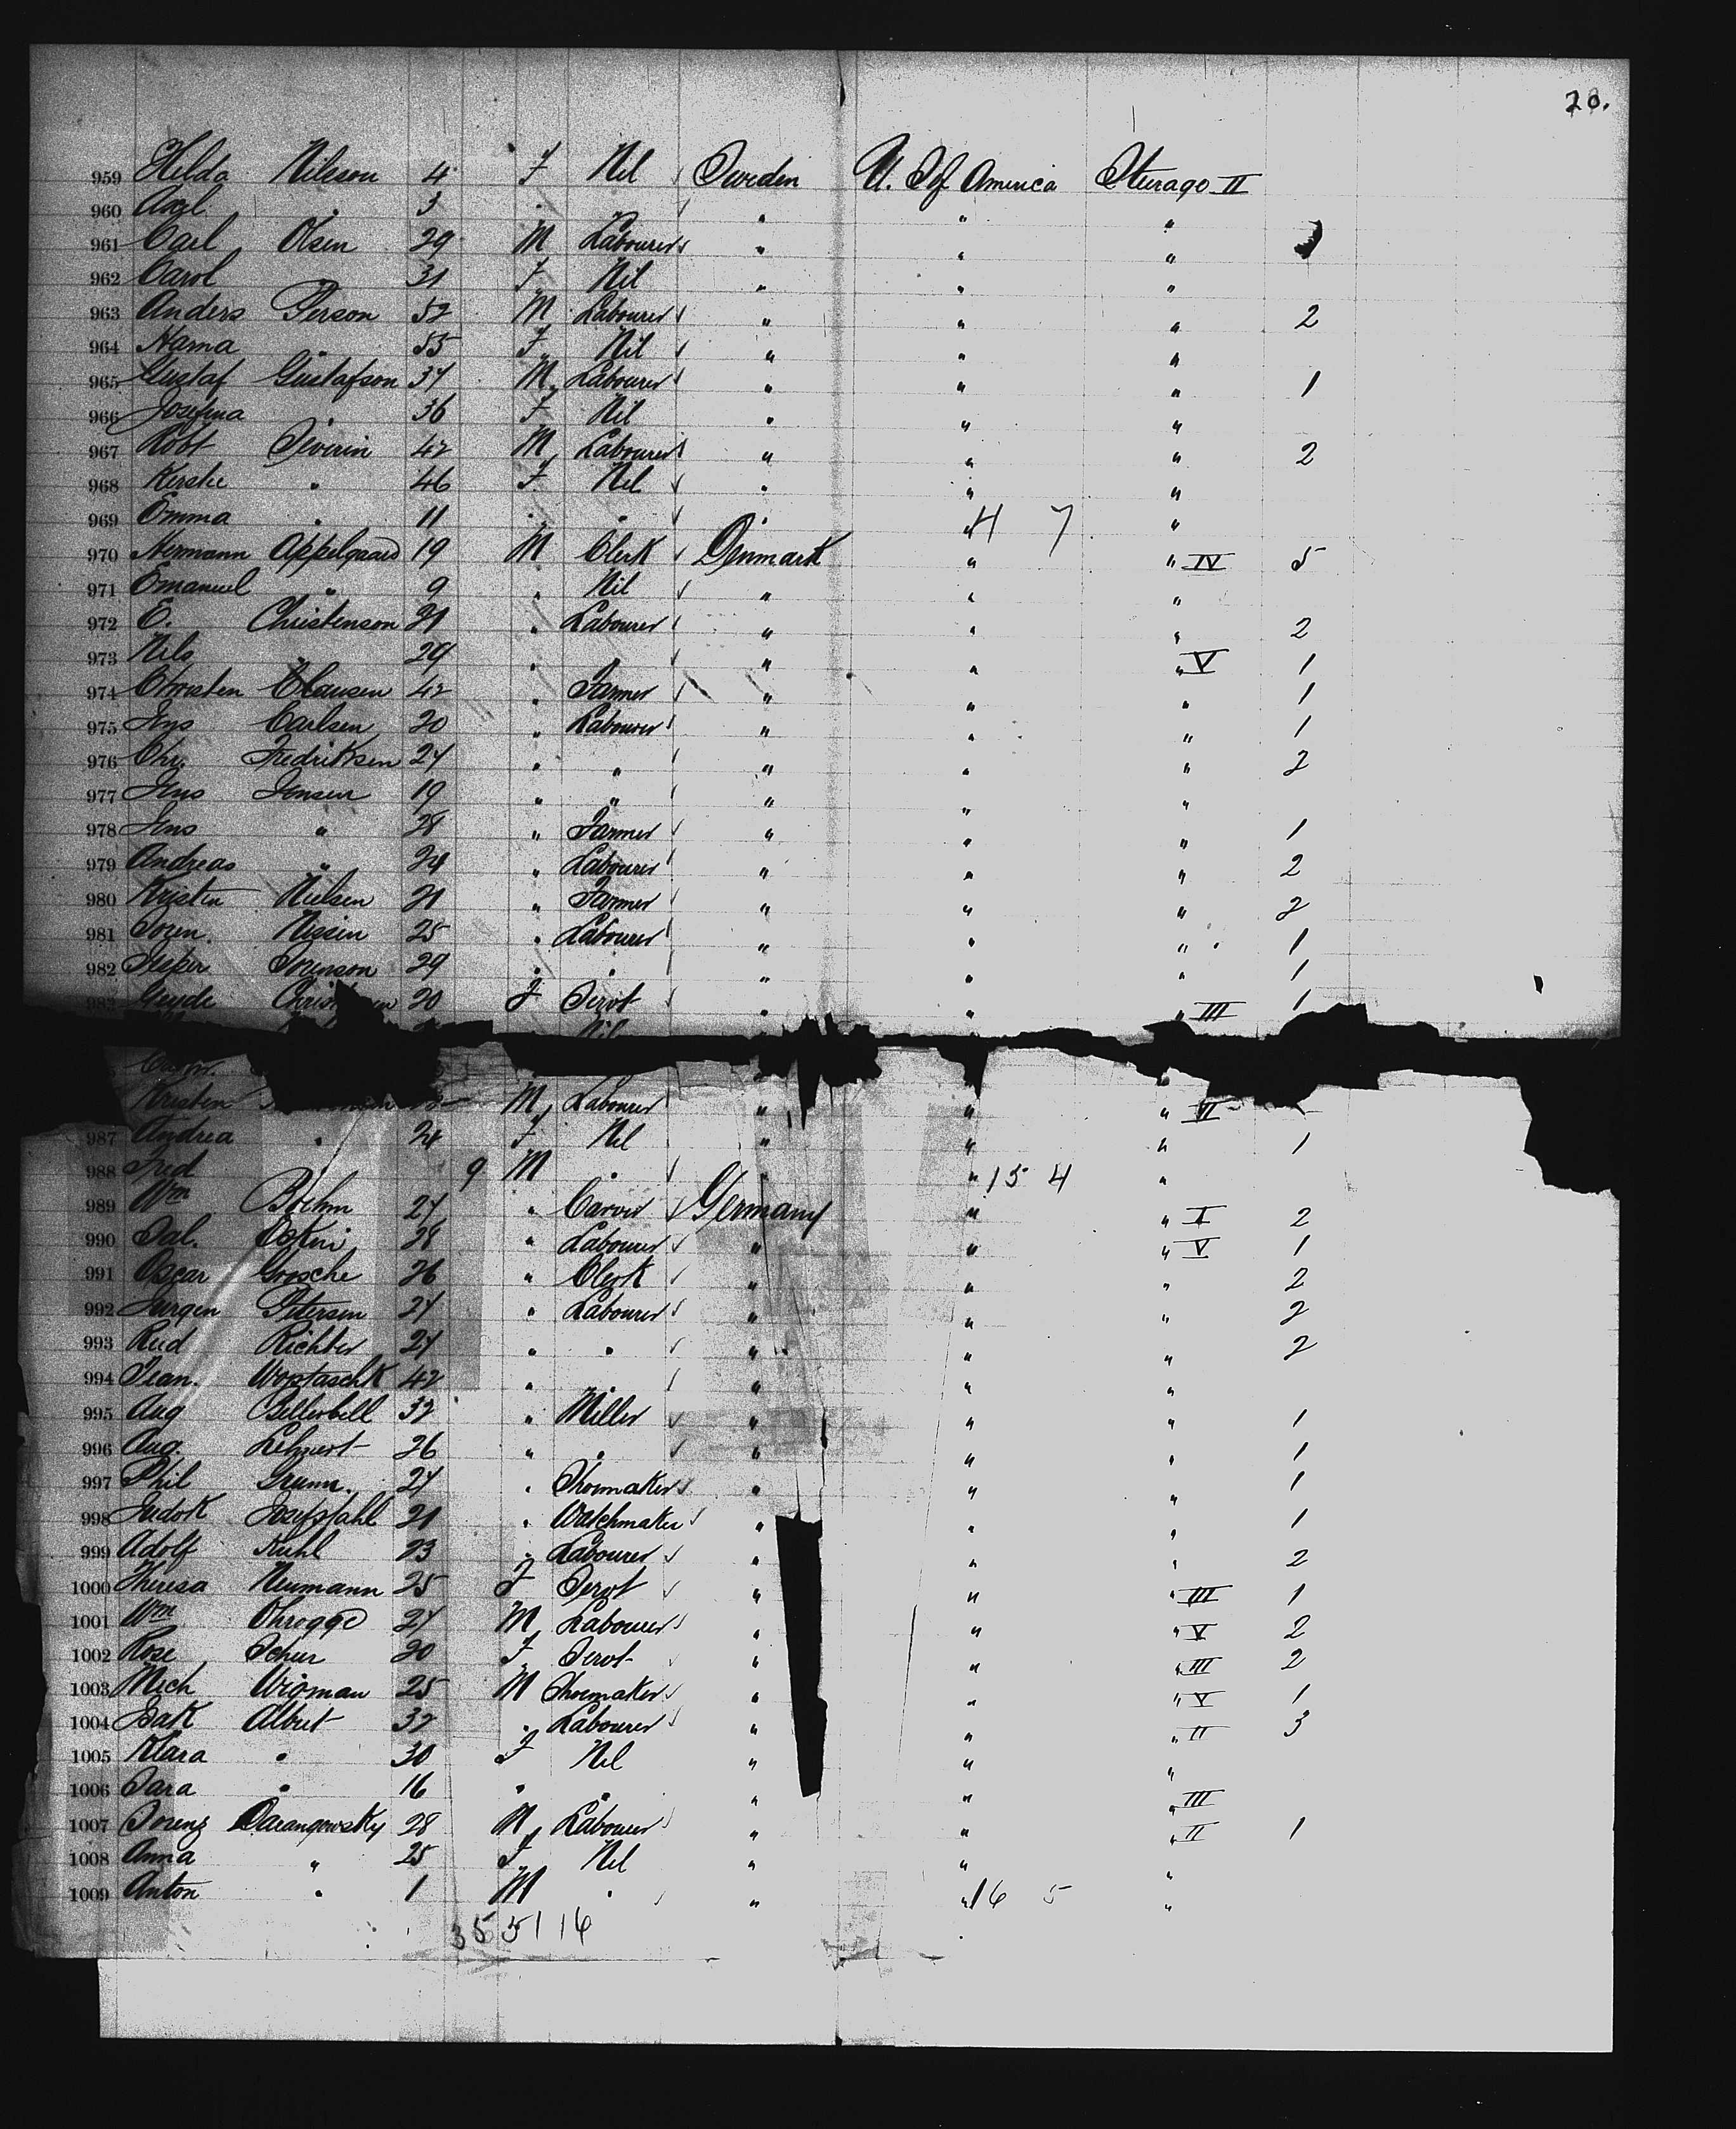 20.
959 Hilda Nilsson 4 F Nil Sweden U. S of America Sterage II
960 Axel " 3 " " " "
961 Carl Olsen 29 M Labourer " " "
962 Carol " 31 F Nil " " "
963 Anders Person 52 M Labourer " " " 2
964 Hama " 55 F Nil " " "
965 Gustaf Gustafson 37 M Labourer " " " 1
966 Josefina 36 F Nil " " "
967 Robt Severin 42 M Labourer " " " 2
968 Kerstie " 46 F Nil " " "
969 Emma " 11 " " " " 4 7 "
970 Hermann Appelgaard 19 M Clerk Denmark " " IV 5
971 Emanuel " 9 " Nil " " "
972 E. Christenson 21 " Labourer " " " 2
973 Nils " 29 " " " " " V 1
974 Christen Clausen 42 " Farmer " " " 1
975 Jens Carlsen 20 " Labourer " " " 1
976 Chr. Fredriksen 24 " " " " " 2
977 Jens Jensen 19 " " " " "
978 Jens " 28 " Farmer " " " 1
979 Andreas " 24 " Labourer " " " 2
980 Kristen Nielsen 21 " Farmer " " " 2
981 Soren Nissen 25 " Labourer " " " 1
982 Jesper Sorenson 29 " " " " " 1
983 20 F Servt " " " III 1
Nil
Kristen M Labourer " " " VI
987 Andrea " 24 F Nil " " " 1
988 Fred 9 M " " " 15 4 "
989 Wm Boehm 27 " Carver Germany " " I 2
990 Sal. 28 " Labourer " " " V 1
991 Oscar Groosche 26 " Clerk " " " 2
992 Jurgen Petersen 24 " Labourer " " " 2
993 Richter 27 " " " " " 2
994 Woptaschk 42 " " " "
995 Aug Bellerbell 32 " Miller " " " 1
996 Aug. Lehnert 26 " " " " " 1
997 Phil Grunn 24 " Shoemaker " " " 1
998 Josefstahl 21 " Watchmaker " " " 1
999 Adolf Kuhl 23 " Labourer " " " 2
1000 Theresa Neumann 25 F Servt " " " III 1
1001 Wm Ohrogge 27 M Labourer " " " V 2
1002 Rose Scheer 20 F Servt " " " III 2
1003 Mich Wigman 25 M Shoemaker " " " V 1
1004 Isak Albert 32 " Labourer " " " II 3
1005 Klara " 30 F Nil " " "
1006 Sara " 16 " " " " " III
1007 Lorenz Darangowsky 28 M Labourer " " " II 1
1008 Anna " 25 F Nil " " "
1009 Anton " 1 M " " " 16 5 "
35 51 16